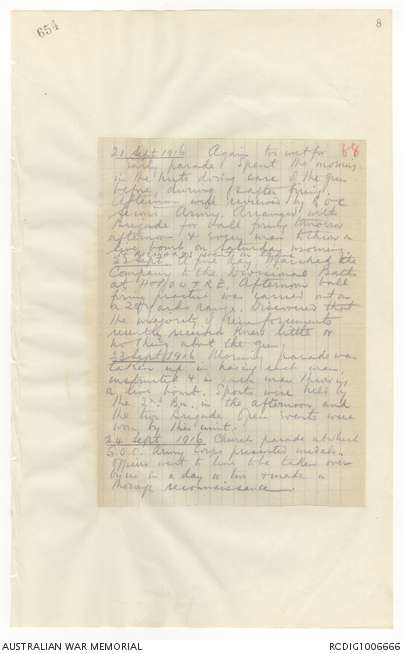 654
8
68
21 Sept 1916 Again too wet for
early parade. Spent the morning
in the huts doing care of the gun
before, during & after firing.
Afternoon were reviewed by G.O.C
Second Army. Arranged with
Brigade for ball firing
afternoon & every man to throw a
live bomb on Saturday morning.
22 Sept A fine day. Marched the
Company to the Divisional Baths
at HOPOUTRE. Afternoon ball
firing practice was carried out on
a 25 yards range. Discovered that
the majority of reinforcements
recently received knew little or
nothing about the gun.
23 Sept 1916 Morning parade was
taken up in having each man
inspected & in each man throwing
a live bomb. Sports were held by
the 2nd Bn. in the afternoon and
the two Brigade Open Events were
won by this unit.
24 Sept 1916 Church parade at which
G.O.C. Army Corps presented medals.
Officers went to line to be taken over
by us in a day or two & made a
thorough reconnaissance
AUSTRALIAN WAR MEMORIAL
RCDIG1006666